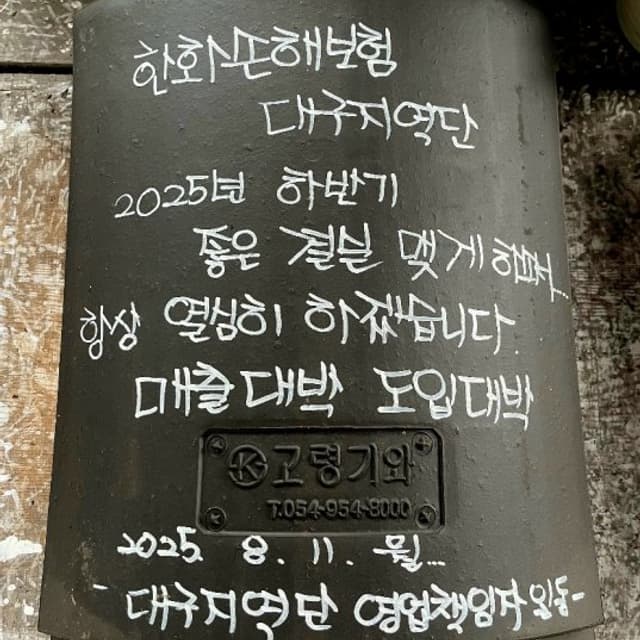 한화손해보험
대구지역단
2025년 하반기
좋은 결실 맺게 해주...
항상 열심히 하겠습니다.
매출대박 도입대박
K 고령기와
T.054-954-8000
2025. 8. 11. 월...
- 대구지역단 영업책임자 일동 -